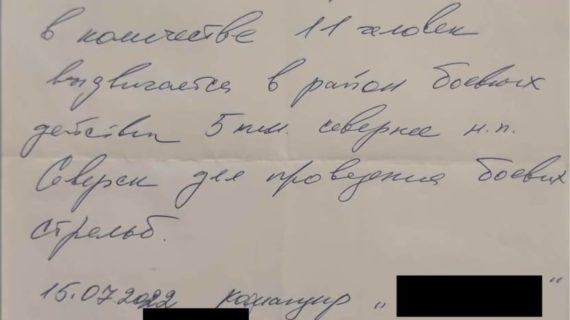 в количестве 11 человек
выдвигается в район боевых
действий 5 км. севернее н.п.
Северск для проведения боевых
стрельб.
15.07.2022 командир „ “